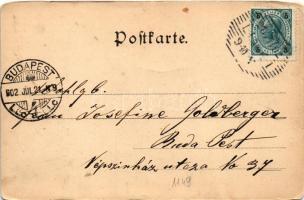 Postkarte.
BUDAPEST
902 JUL 21
Josefine Goldberger
Buda Pest
Népszinház utcza No 37
1149